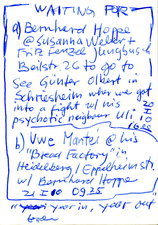 WAITING FOR
a) Bernhard Hoppe
@ Susanna Weller &
Fritz Fenzel Junghuss-
Baistr 26 to go to
See Günter Olbert in
Schriesheim who we got
into a fight w/ his
psychotic neighbour Uli
20
10
1620
b) Uwe Mantei @ his
"Bread Factory" in
Heidelberg / Eppelheimstr
w/ Bernhard Hoppe
21 I 00 0925
year in, year out